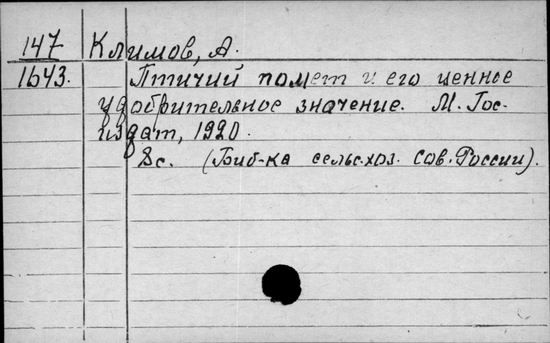 147 Климов, А.
1643. Птичий помет и его ценное
удобрительное значение. М. Гос-
издат, 1920.
8с. (Биб-ка сельс.хоз. Сов. России).